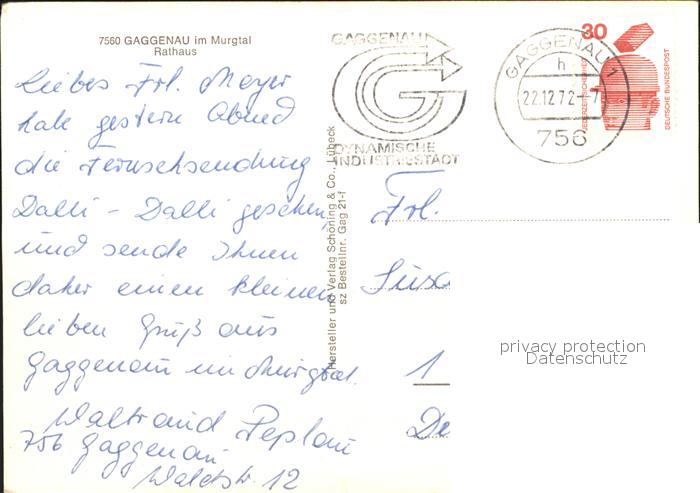 7560 GAGGENAU im Murgtal
Rathaus
Liebes Frl. Meyer
habe gestern Abend
die Fernsehsendung
Dalli - Dalli gesehen,
und sende Ihnen
daher einen kleinen
lieben Gruß aus
Gaggenau im Murgtal.
Waltraud Peplau
756 Gaggenau
Waldstr. 12
Hersteller und Verlag Schöning & Co., Lübeck
sz Bestellnr. Gag 21-f
GAGGENAU
DYNAMISCHE
INDUSTRIESTADT
GAGGENAU 1
h
22.12.72-7
756
30
JEDERZEIT SICHERHEIT
DEUTSCHE BUNDESPOST
Frl.
Susa
1
De
privacy protection
Datenschutz